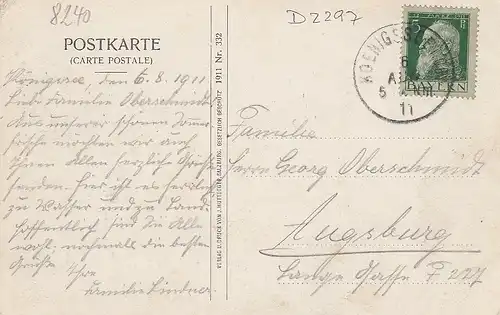 8240
D2297
POSTKARTE
(CARTE POSTALE)
Königssee, den 6.8.1911
Liebe Familie Oberschmidt
Aus unserer schönen Sommer-
frische möchten wir auch
Ihnen Allen herzlich Grüße
senden. Hier ist es herrlich
zu Wasser und zu Land.
Hoffentlich sind Sie Alle
wohl. nochmals die besten
Grüße Ihre
Familie Lindner.
VERLAG U. DRUCK VON J. HUTTEGGER, SALZBURG. GESETZLICH GESCHÜTZT 1911 Nr. 332
5
BAYERN
KOENIGSSEE
6
AUG
5
11
Familie
Herrn Georg Oberschmidt
Augsburg
Lange Gasse F 227